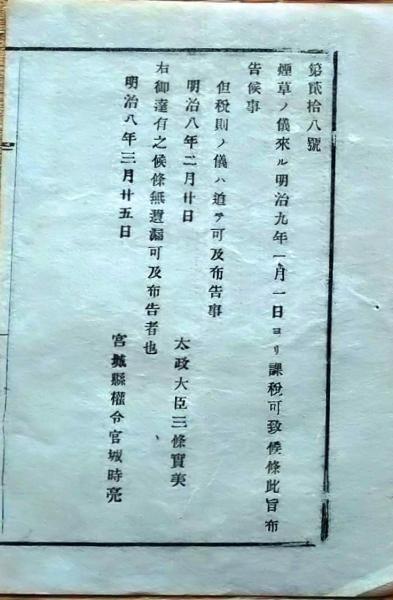 第貳拾八號
煙草ノ儀來ル明治九年一月一日ヨリ課稅可致候條此旨布
告候事
但稅則ノ儀ハ追テ可及布告事
明治八年二月廿日
太政大臣三條實美
右御達有之候條無遺漏可及布告者也
明治八年三月廿五日
宮城縣權令宮城時亮